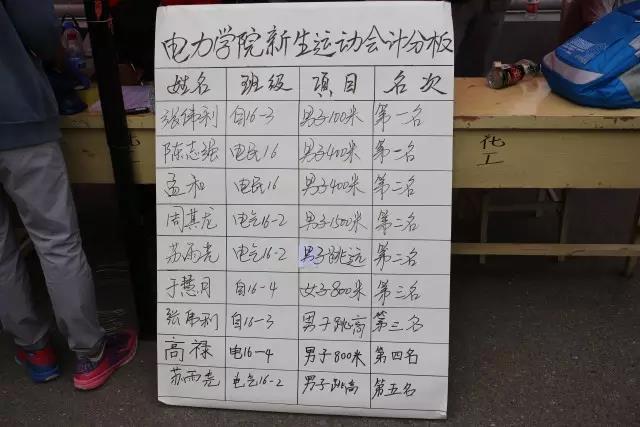 电力学院新生运动会计分板
姓名 班级 项目 名次
张伟利 自16-3 男子100米 第一名
陈志强 电民16 男子400米 第一名
孟和 电民16 男子400米 第二名
周其龙 电气16-2 男子1500米 第二名
苏雨尧 电气16-2 男子跳远 第二名
于慧月 自16-4 女子800米 第三名
张伟利 自16-3 男子跳高 第三名
高禄 电16-4 男子800米 第四名
苏雨尧 电气16-2 男子跳高 第五名
化工
化工